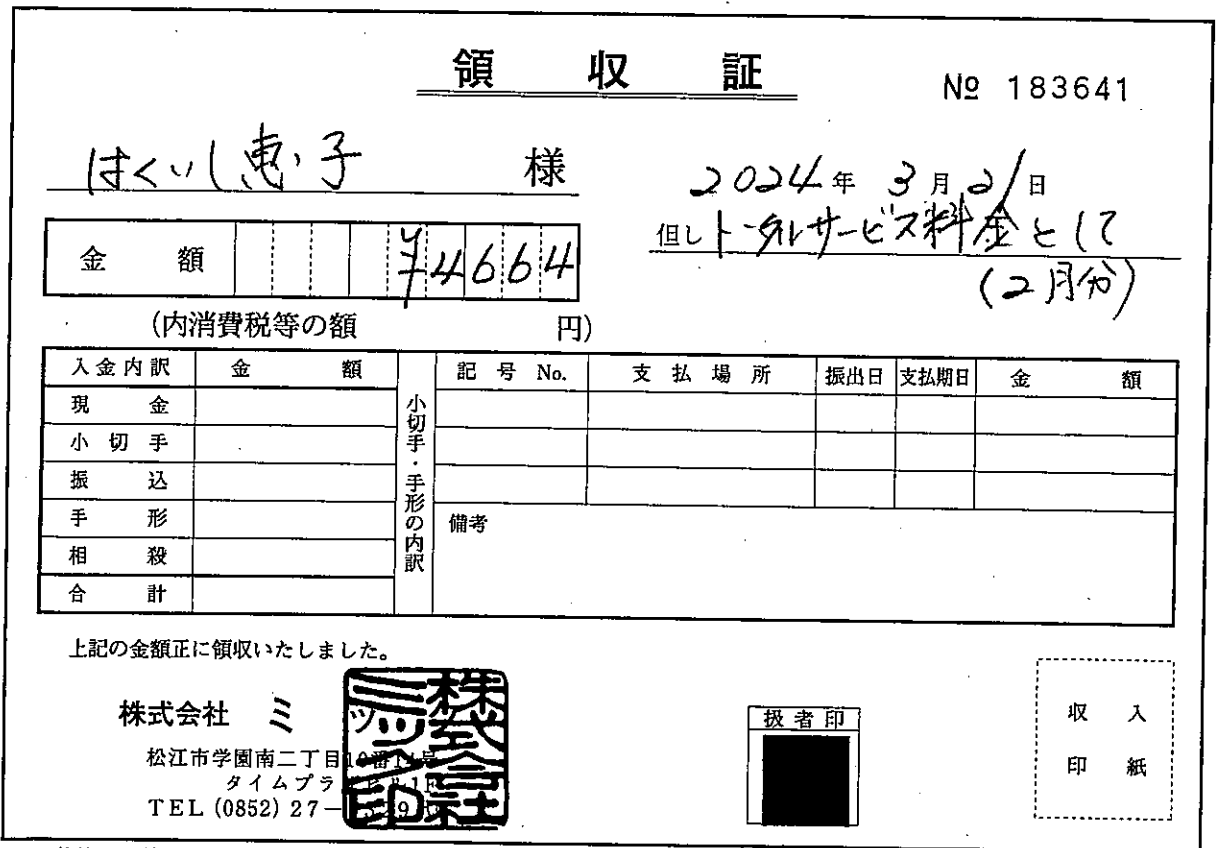 領収証
№ 183641
はくいし恵子 様
2024年3月21日
但しトータルサービス料金として
(2月分)
金額 ¥4664
(内消費税等の額 円)
入金内訳 金額
現金
小切手
振込
手形
相殺
合計
小切手・手形の内訳
記号No. 支払場所 振出日 支払期日 金額
備考
上記の金額正に領収いたしました。
株式会社 ミ
松江市学園南二丁目
タイムプラ
TEL (0852) 27-
扱者印
収入
印紙